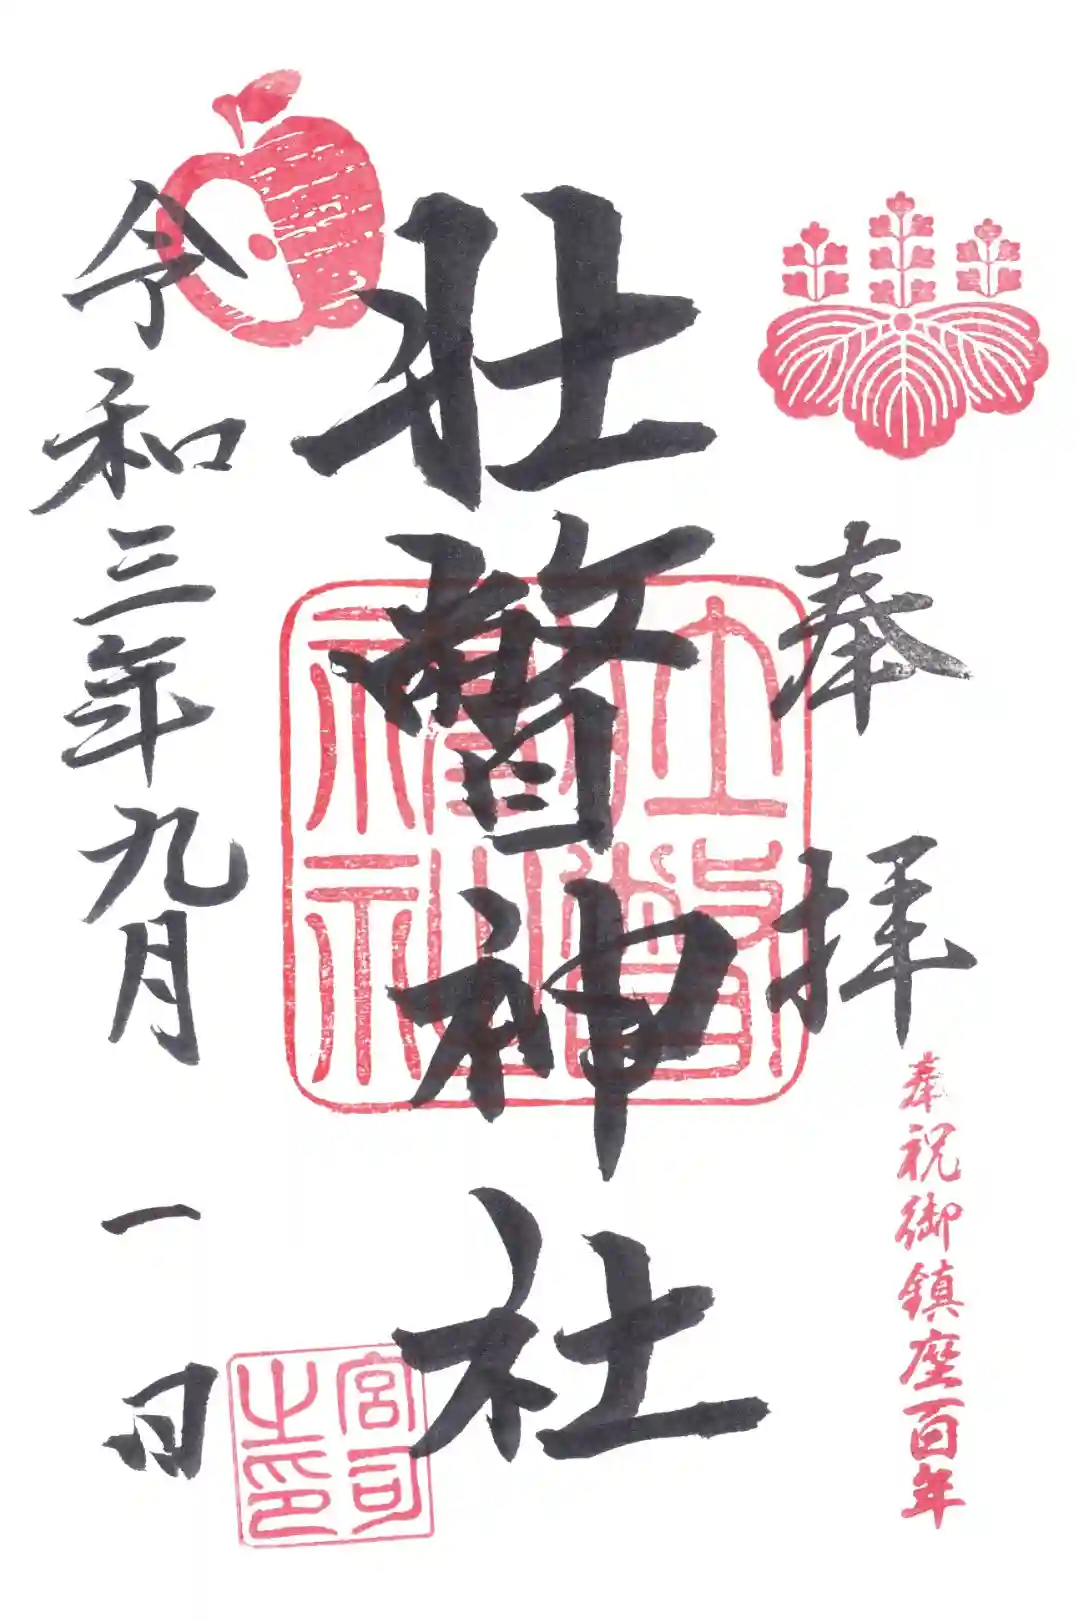 奉拝
奉祝御鎮座百年
壮瞥神社
壮瞥神社
令和三年九月一日
宮司之印